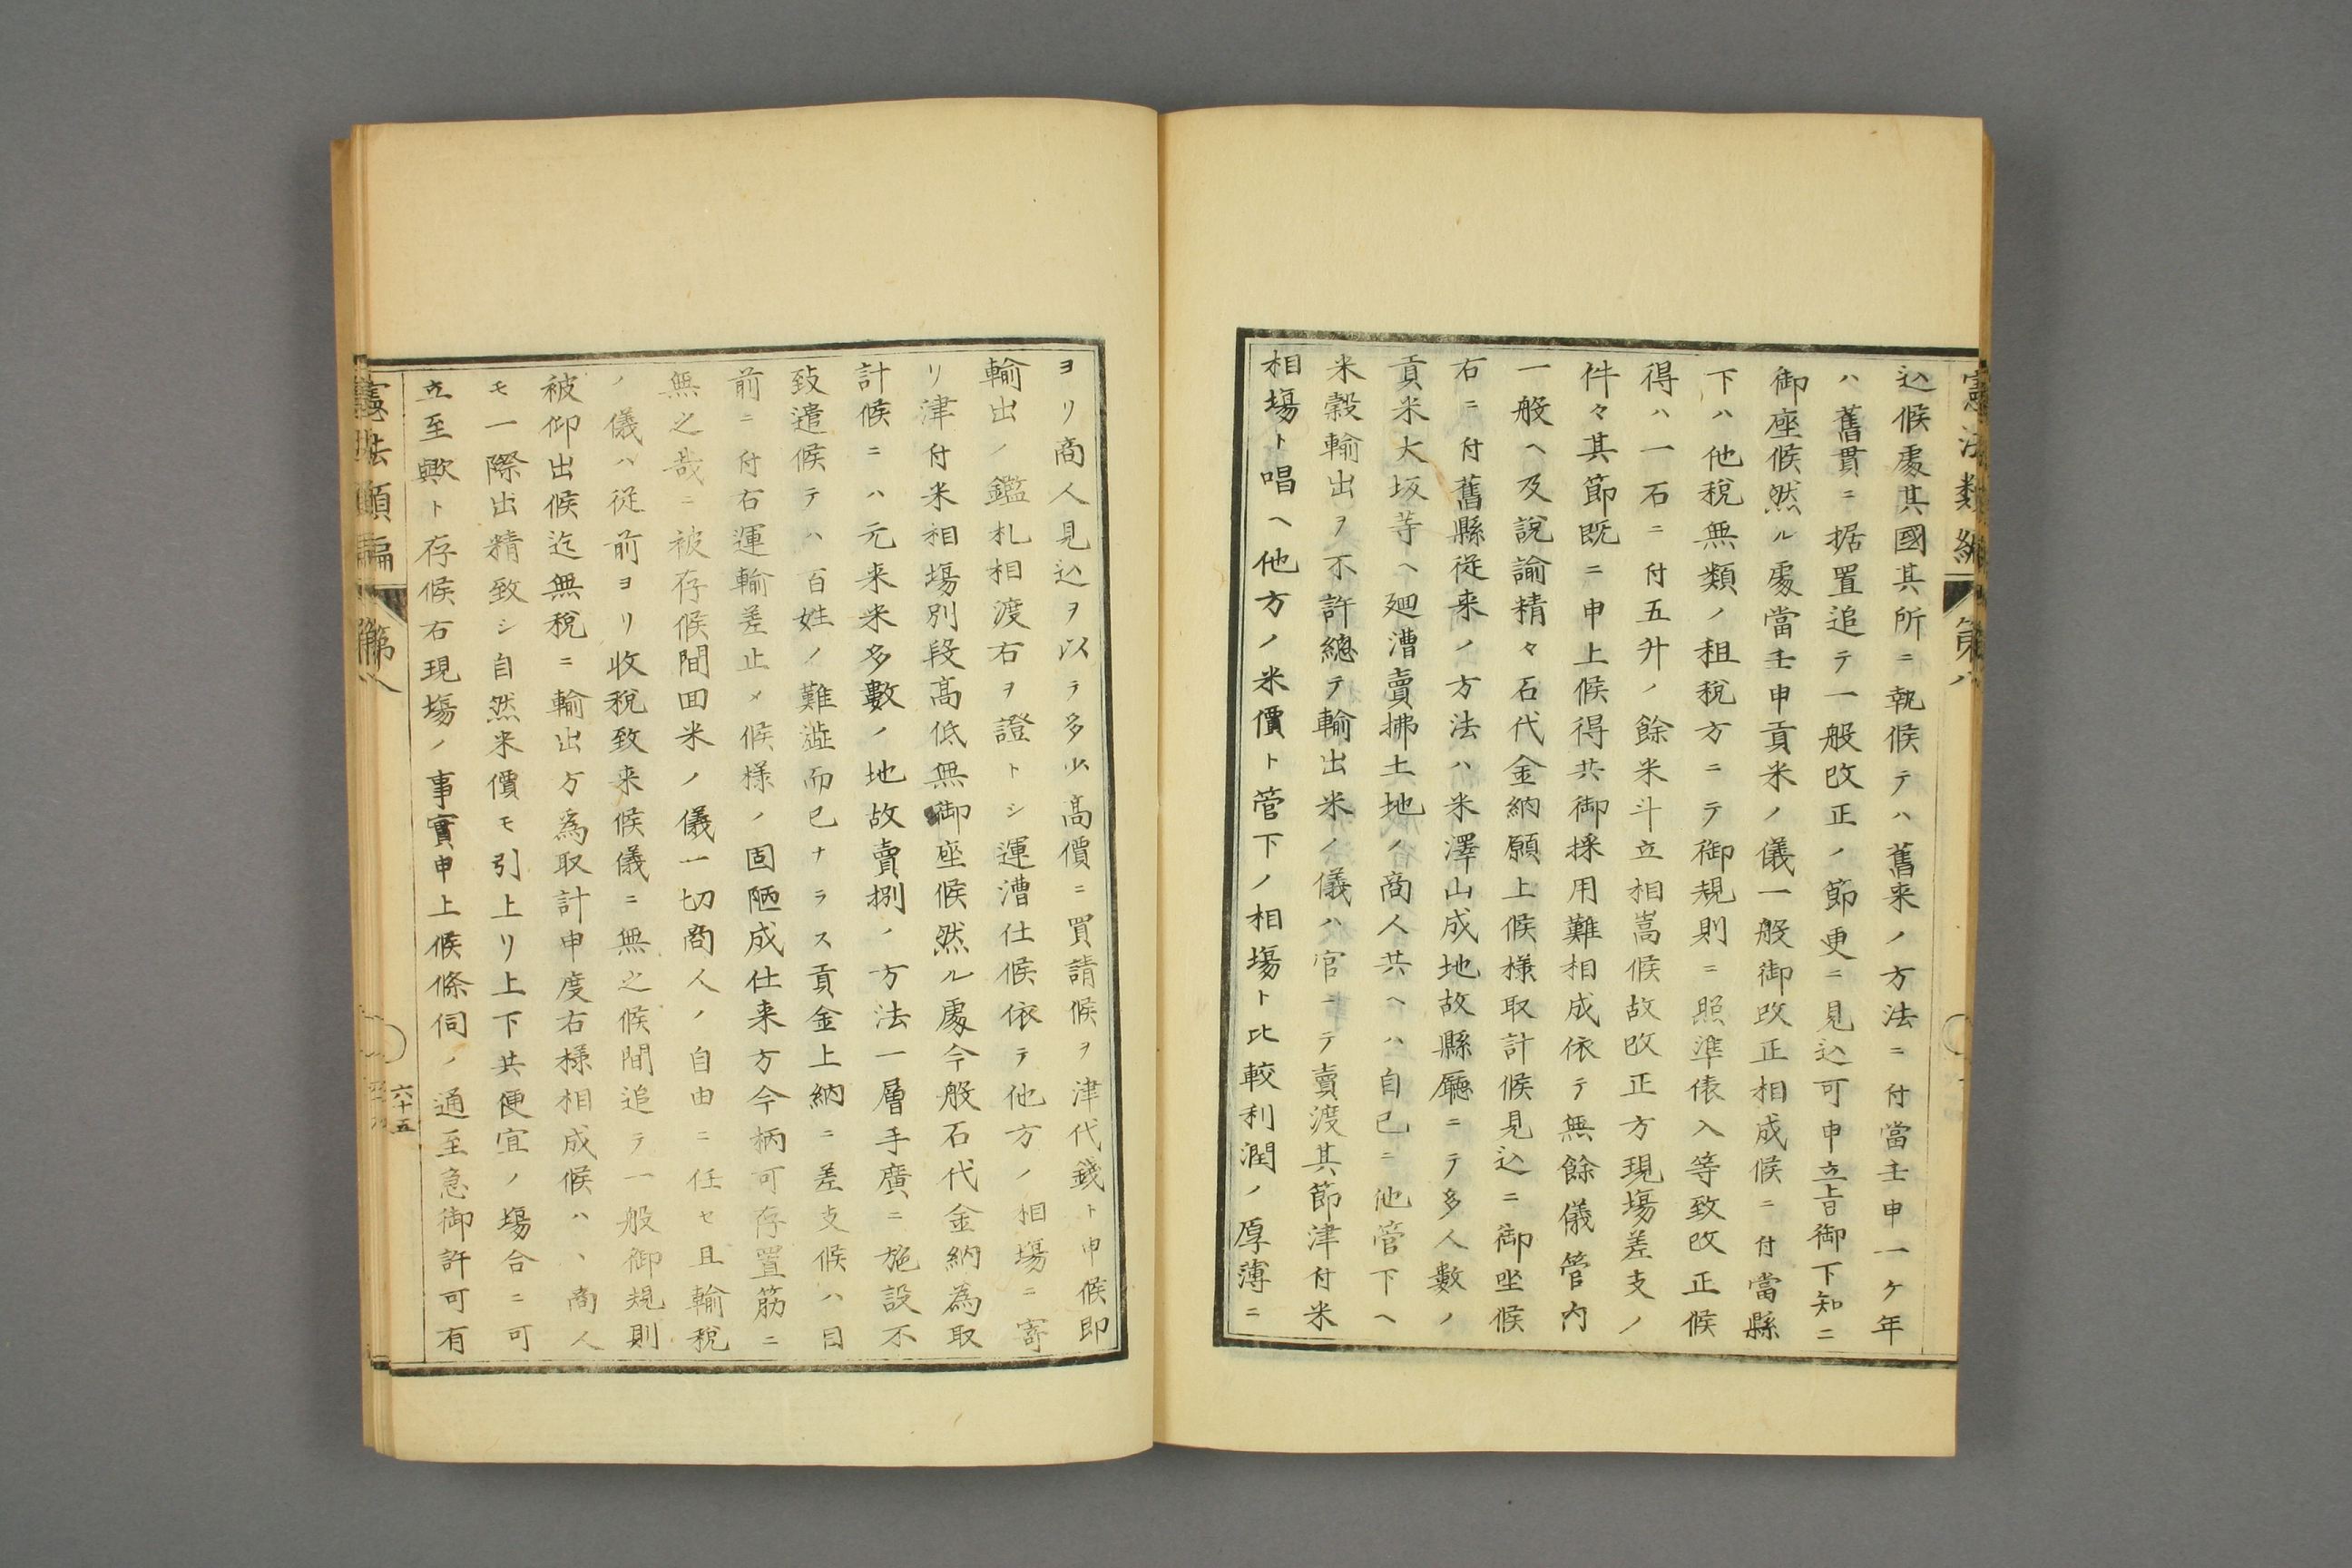 憲法類編 第八
込候處其國其所ニ執候テハ舊来ノ方法ニ付當壬申一ケ年
ハ舊貫ニ据置追テ一般改正ノ節更ニ見込可申立旨御下知ニ
御座候然ル處當壬申貢米ノ儀一般御改正相成候ニ付當縣
下ハ他税無類ノ租税方ニテ御規則ニ照準俵入等致改正候
得ハ一石ニ付五升ノ餘米斗立相嵩候故改正方現場差支ノ
件々其節既ニ申上候得共御採用難相成依テ無餘儀管内
一般ヘ及說諭精々石代金納願上候様取計候見込ニ御坐候
右ニ付舊縣従来ノ方法ハ米澤山成地故縣廳ニテ多人數ノ
貢米大坂等ヘ廻漕賣拂土地ノ商人共ヘハ自己ニ他管下ヘ
米穀輸出ヲ不許總テ輸出米ノ儀ハ官ニテ賣渡其節津付米
相場ト唱ヘ他方ノ米價ト管下ノ相場ト比較利潤ノ厚薄ニ
ヨリ商人見込ヲ以テ多少高價ニ買請候ヲ津代錢ト申候即
輸出ノ鑑札相渡右ヲ證トシ運漕仕候依テ他方ノ相場ニ寄
リ津付米相場別段高低無御座候然ル處今般石代金納為取
計候ニハ元来米多數ノ地故賣捌ノ方法一層手廣ニ施設不
致遣候テハ百姓ノ難澁而已ナラス貢金上納ニ差支候ハ目
前ニ付右運輸差止メ候様ノ固陋成仕来方今柄可存置筋ニ
無之哉ニ被存候間回米ノ儀一切商人ノ自由ニ任セ且輸税
ノ儀ハ従前ヨリ收税致来候儀ニ無之候間追テ一般御規則
被仰出候迄無税ニ輸出方為取計申度右様相成候ハヽ商人
モ一際出精致シ自然米價モ引上リ上下共便宜ノ場合ニ可
立至歟ト存候右現場ノ事實申上候條伺ノ通至急御許可有
憲法類編 第八
六十五